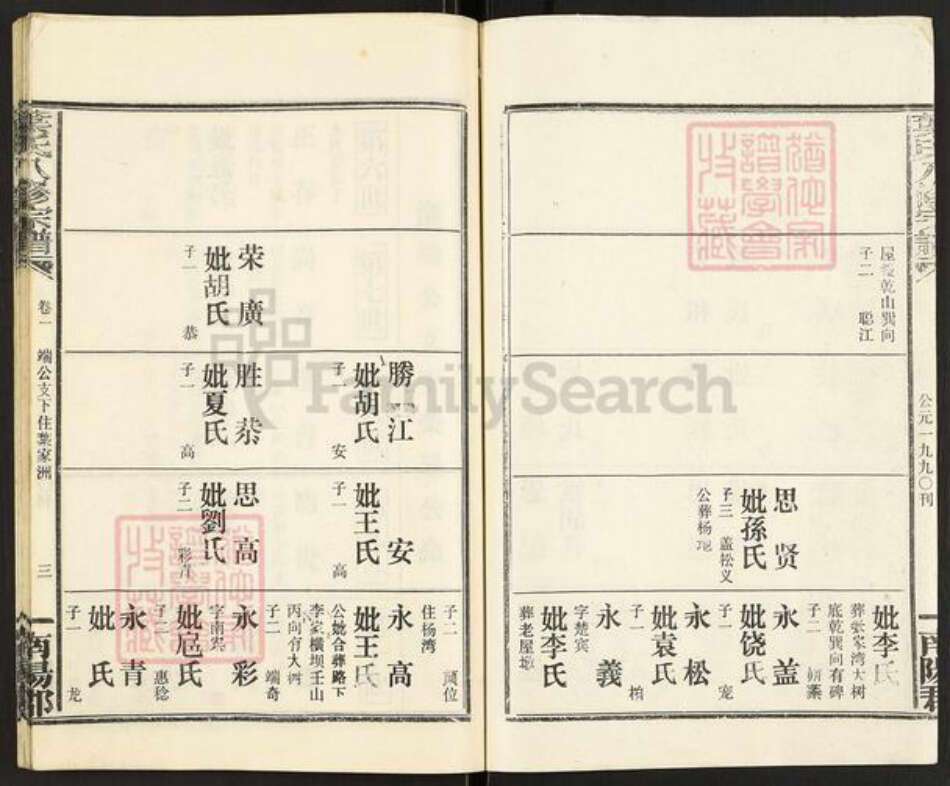 屋場乾山巽向
子二
聪江
思贤
妣孫氏
子三 盖松义
公葬杨
妣李氏
底乾巽向有碑
子二
永盖
妣饶氏
子一
宠
永松
妣袁氏
子一
柏
永義
字楚宾
妣李氏
葬老屋
公元一九九〇刊
荣廣
妣胡氏
子一
恭
勝江
妣胡氏
子一
安
胜恭
妣夏氏
子一
高
安
妣王氏
子一
高
思高
妣劉氏
子二
彩青
子二
位
住杨湾
永高
妣王氏
公妣合葬路下
李家横坝壬山
丙向有大树
子二
端奇
永彩
妣扈氏
子二
惠稔
永青
妣氏
子一
龙
葉氏八修宗譜
卷一
端公支下住葉家洲
三
南陽郡
FamilySearch